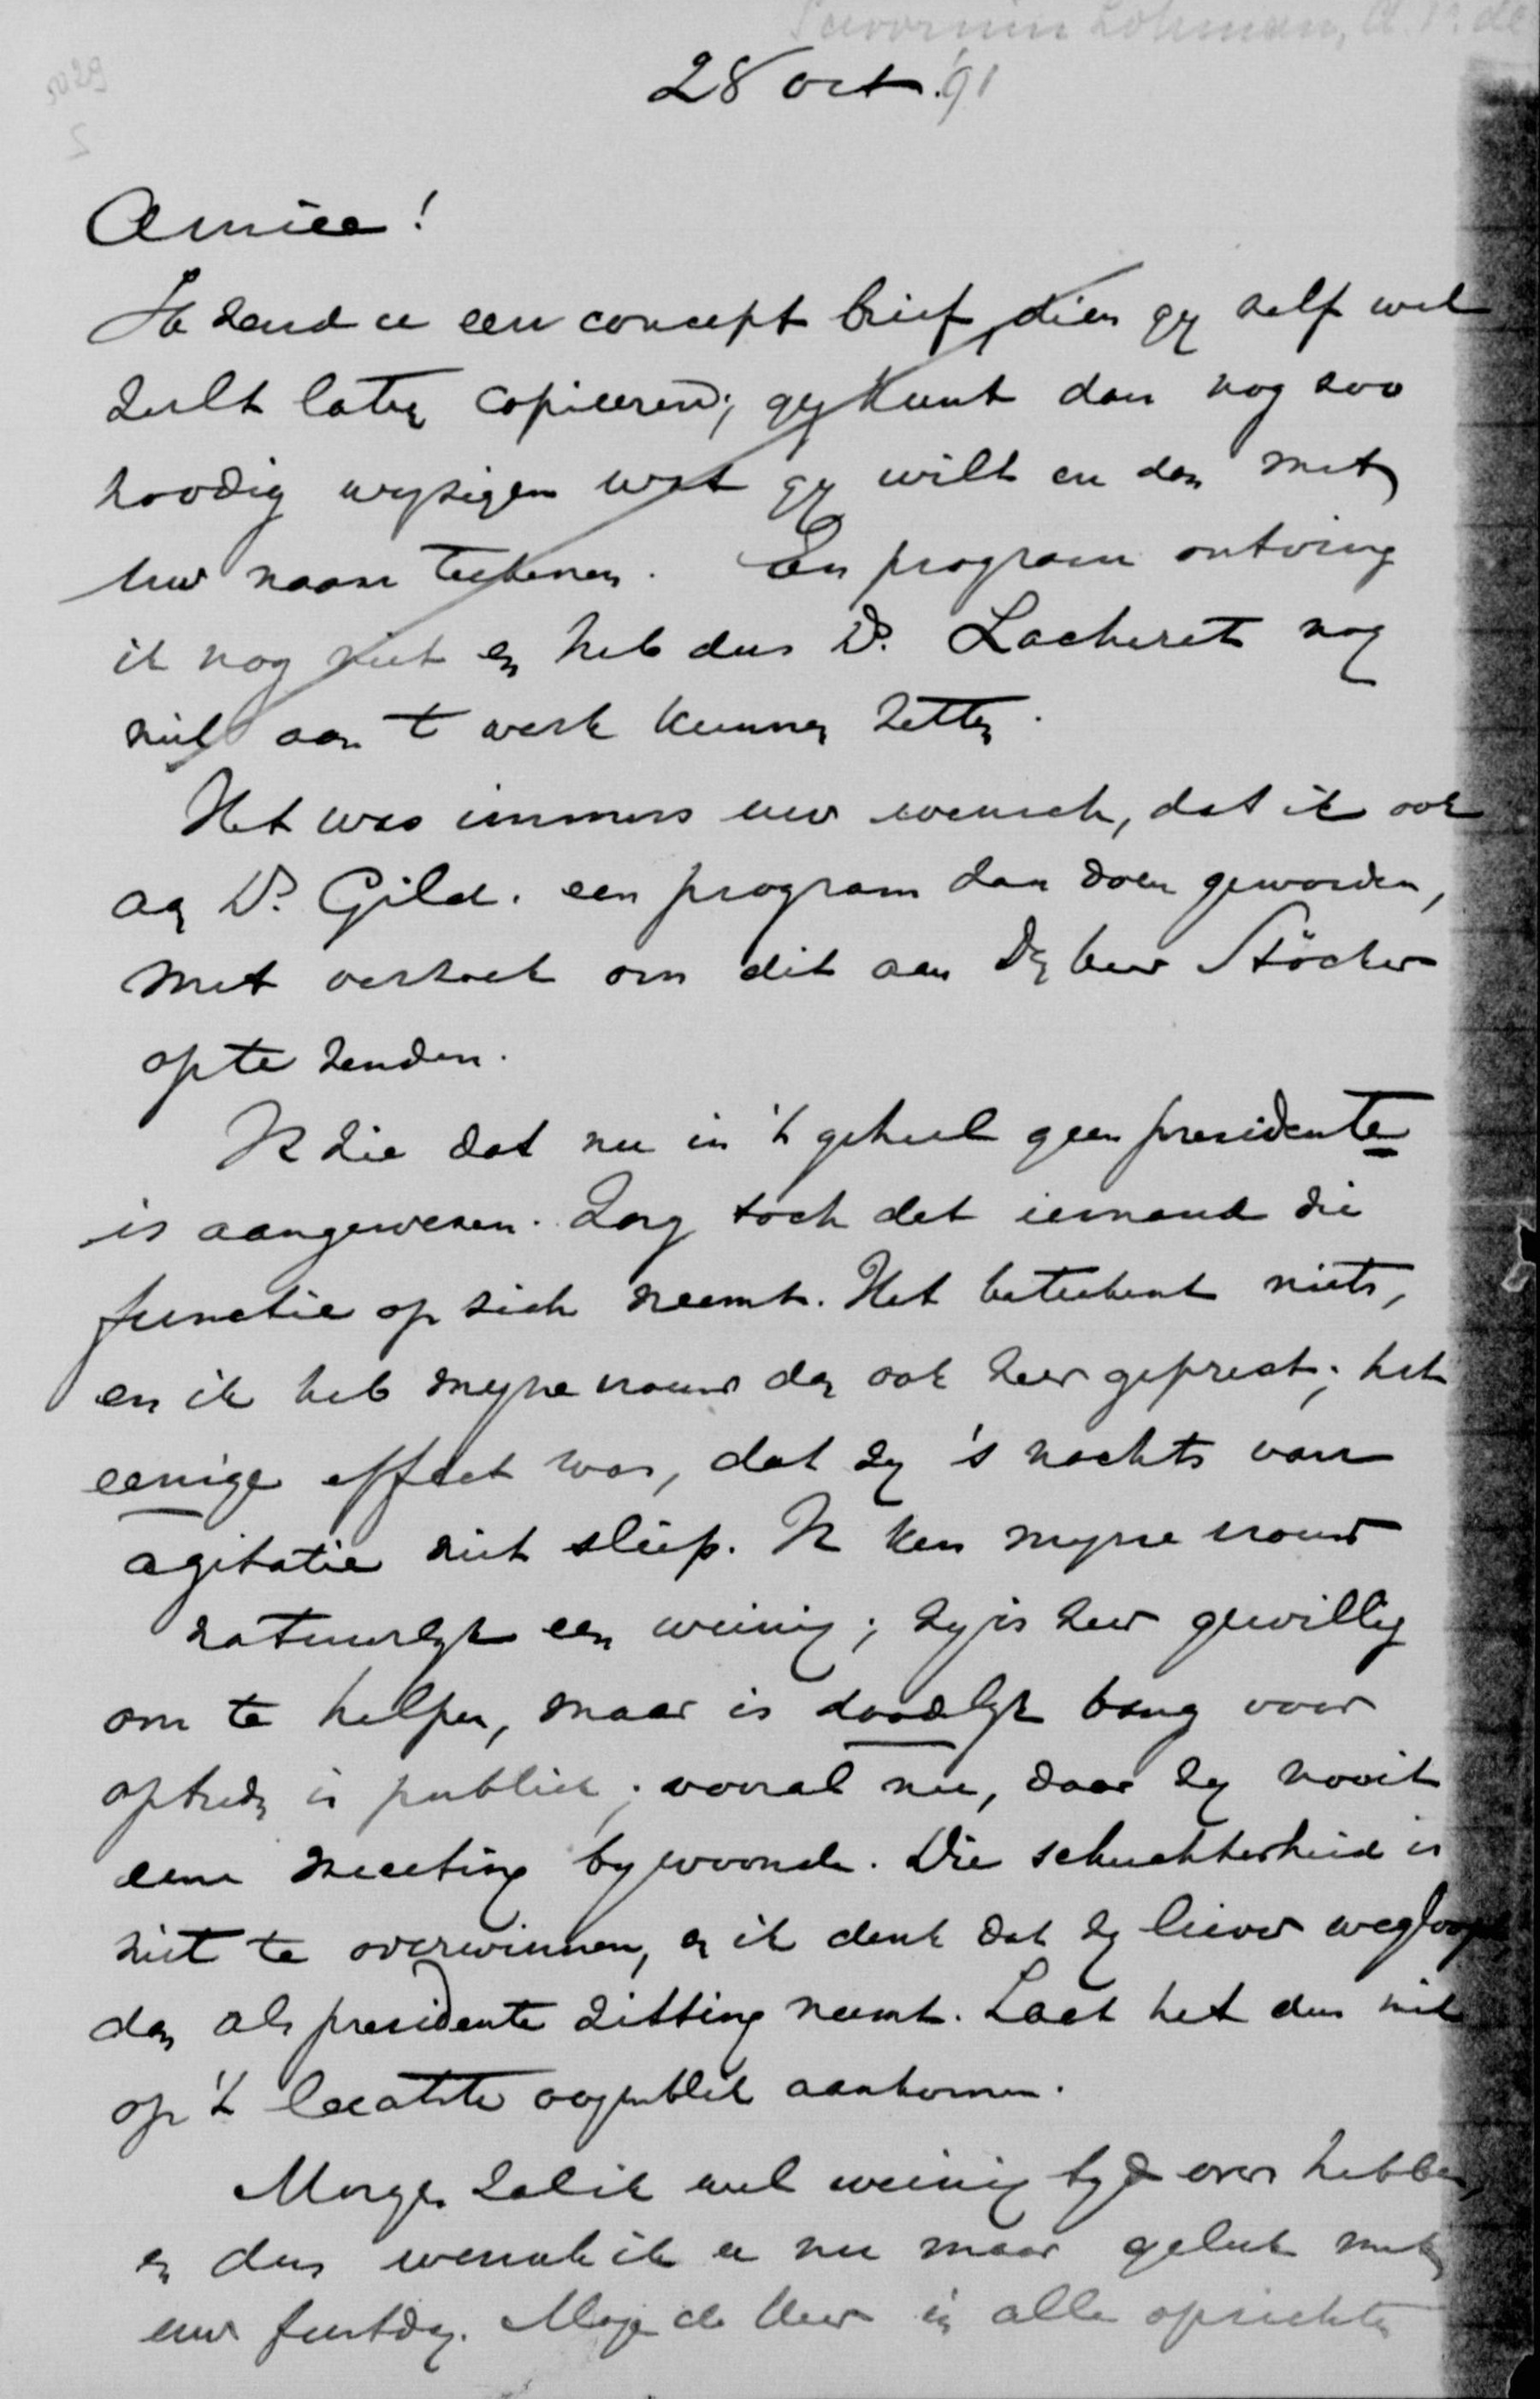 Savornin Lohman, A. F. de
5029
28 Oct. '91
Amice!
Ik zend u een concept brief, dien gy zelf wel
zult laten copieeren; gy kunt dan nog zoo
noodig wyzigen wat gy wilt en dan met
uw naam teekenen. Een program ontving
ik nog niet en heb dus Ds. Lacheret nog
niet aan t werk kunnen zetten.
Het was immers uw wensch, dat ik ook
aan Ds. Gild. een program zou doen geworden,
met verzoek om dit aan den heer Stöcker
op te zenden.
Ik zie dat nu in 't geheel geen presidente
is aangewezen. Zorg toch dat iemand die
functie op zich neemt. Het beteekent niets,
en ik heb myne vrouw dan ook zeer geprest; het
eenige effect was, dat zy 's nachts van
agitatie niet sliep. Ik ken myne vrouw
natuurlyk een weinig; zy is zeer gewillig
om te helpen, maar is doodelyk bang voor
optreden in publiek; vooral nu, daar zy nooit
eene meeting bywoonde. Die schuchterheid is
niet te overwinnen, en ik denk dat zy liever wegloopt
dan als presidente zitting neemt. Laat het dus niet
op 't laatste oogenblik aankomen.
Morgen zal ik wel weinig tyd over hebben,
en dus wensch ik u nu maar geluk met
uw feestdag. Moge de Heer in alle opzichten